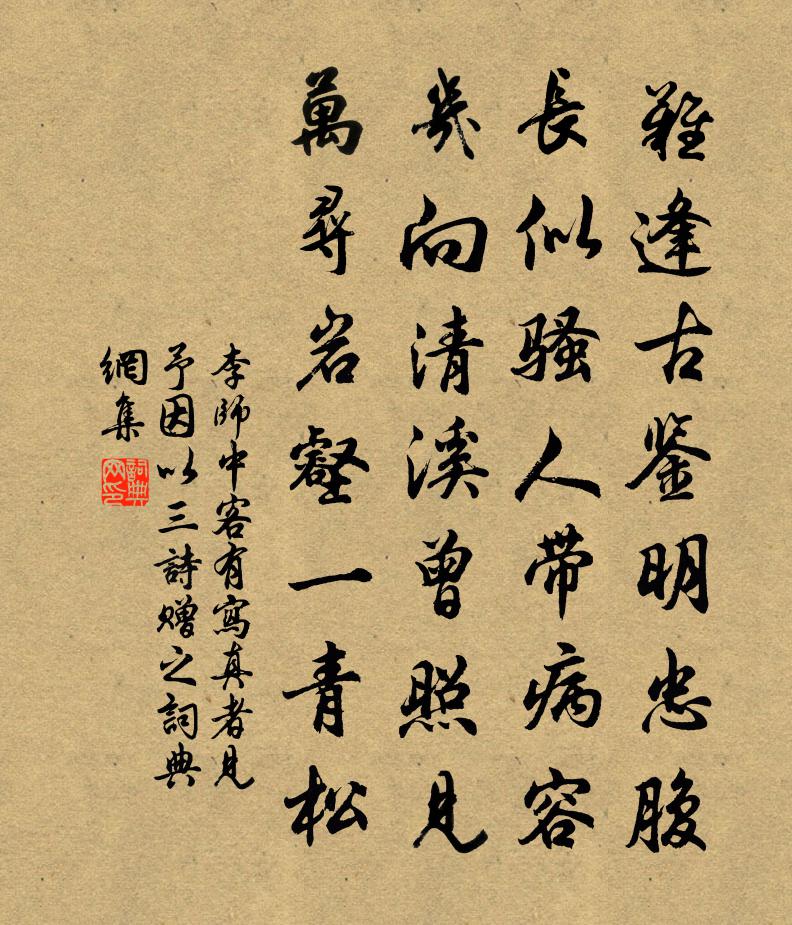 難逢古鉴明忠腹
長似骚人带病容
幾向清溪曾照見
萬尋岩壑一青松
李師中客有寫真者見
予因以三詩赠之詞典
網集
詞典網印